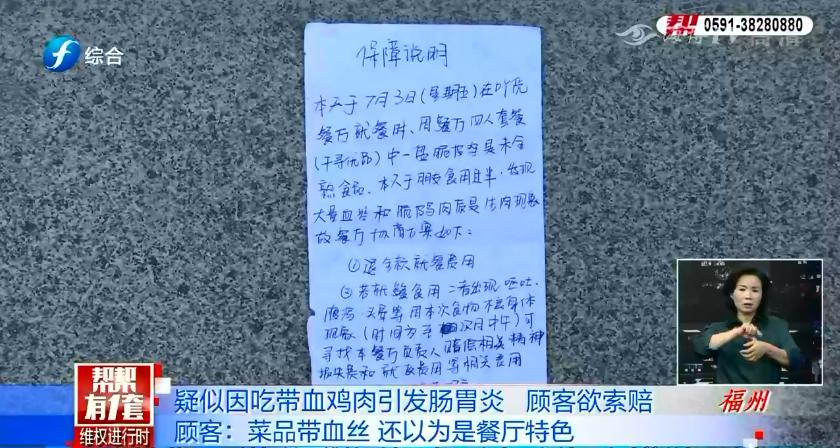 综合
帮 0591-38280880
保障说明
本人于7月3日(星期五)在
餐厅就餐时、因餐厅四人套餐
中一盘脆皮 是未全
熟食品、本人于朋友食用过半、发现
大量血丝和 鸡肉质是生肉现象
故餐厅协商方案如下:
①退全款就餐费用
若就餐食用 出现呕吐、
腹泻、 等因本次食物不良身体
现象(时间为 次日中午)可
寻找本餐厅负责人赔偿相关精神
损失费和就医费用等相关费用
帮帮有1套
维权进行时
疑似因吃带血鸡肉引发肠胃炎 顾客欲索赔
顾客:菜品带血丝 还以为是餐厅特色
福州